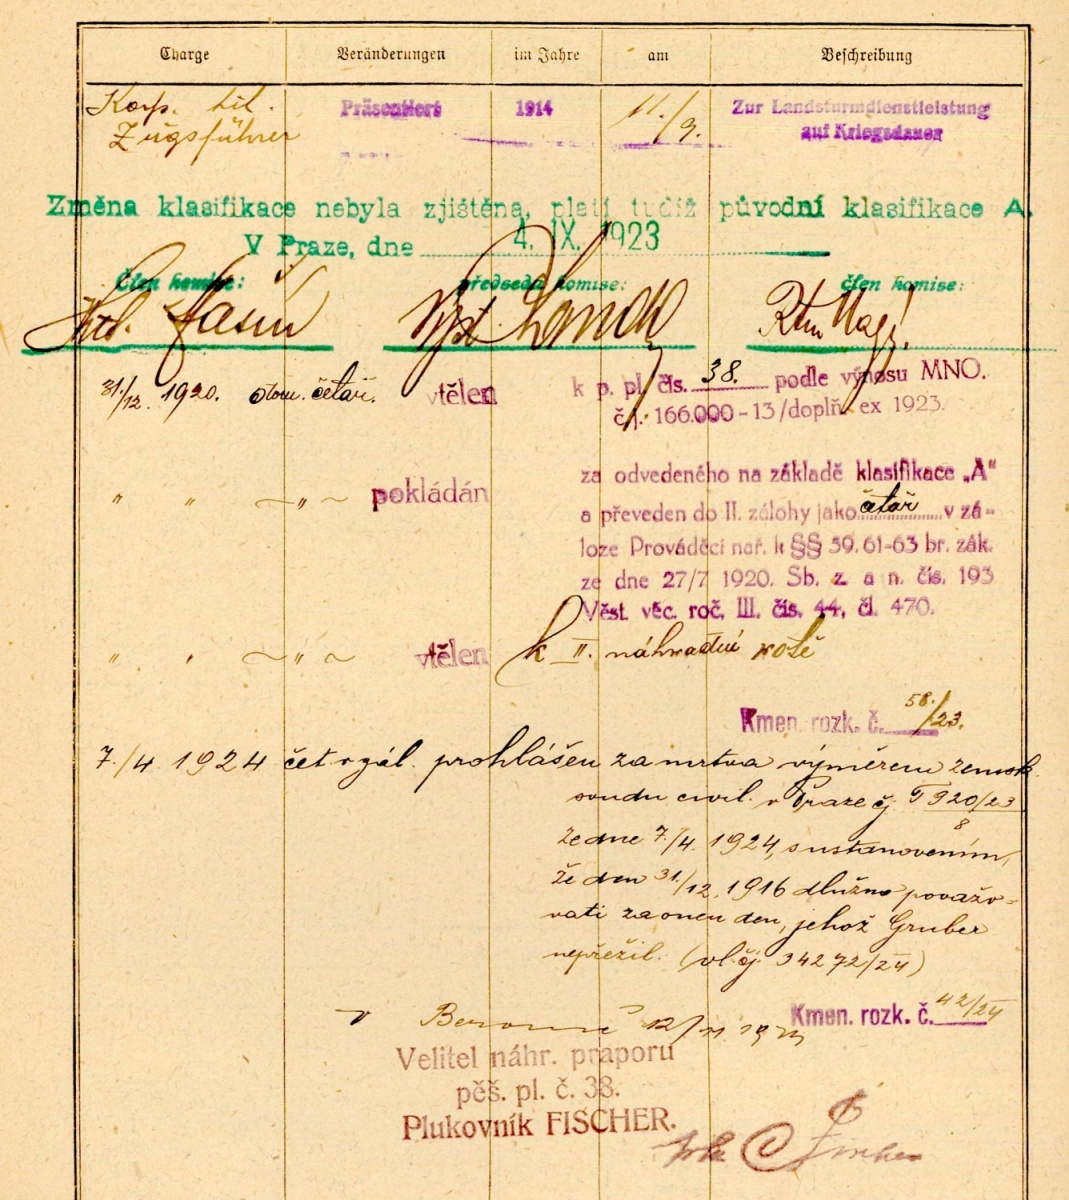 Charge Veränderungen im Jahre am Beschreibung
Korp. tit. Präsentiert 1914 11./9. Zur Landsturmdienstleistung
Zugsführer auf Kriegsdauer
Změna klasifikace nebyla zjištěna, platí tudíž původní klasifikace A.
V Praze, dne 4. IX. 1923
Člen komise: předseda komise: člen komise:
31./12. 1920. četař. vtělen k p. pl. čís. 38. podle výnosu MNO.
č.j. 166.000-13/doplň. ex 1923.
" " ~"~ pokládán za odvedeného na základě klasifikace „A"
a převeden do II. zálohy jako četař v zá-
loze Prováděcí nař. k §§ 59. 61-63 br. zák.
ze dne 27/7 1920. Sb. z. a n. čís. 193
Věst. věc. roč. III. čís. 44, čl. 470.
" " ~"~ vtělen k II. náhradní rotě
Kmen. rozk. č. 58./23.
7./4. 1924 čet v zál. prohlášen za mrtva výměrem zemsk.
soudu civil. v Praze čj. T 920/23
8
ze dne 7./4. 1924, s ustanovením,
že den 31./12. 1916 dlužno považo-
vati za onen den, jehož Gruber
nepřežil. (vl. čj. 34272/24)
Kmen. rozk. č. 42/24
v Berouně 12/11
Velitel náhr. praporu
pěš. pl. č. 38.
Plukovník FISCHER.
Fischer